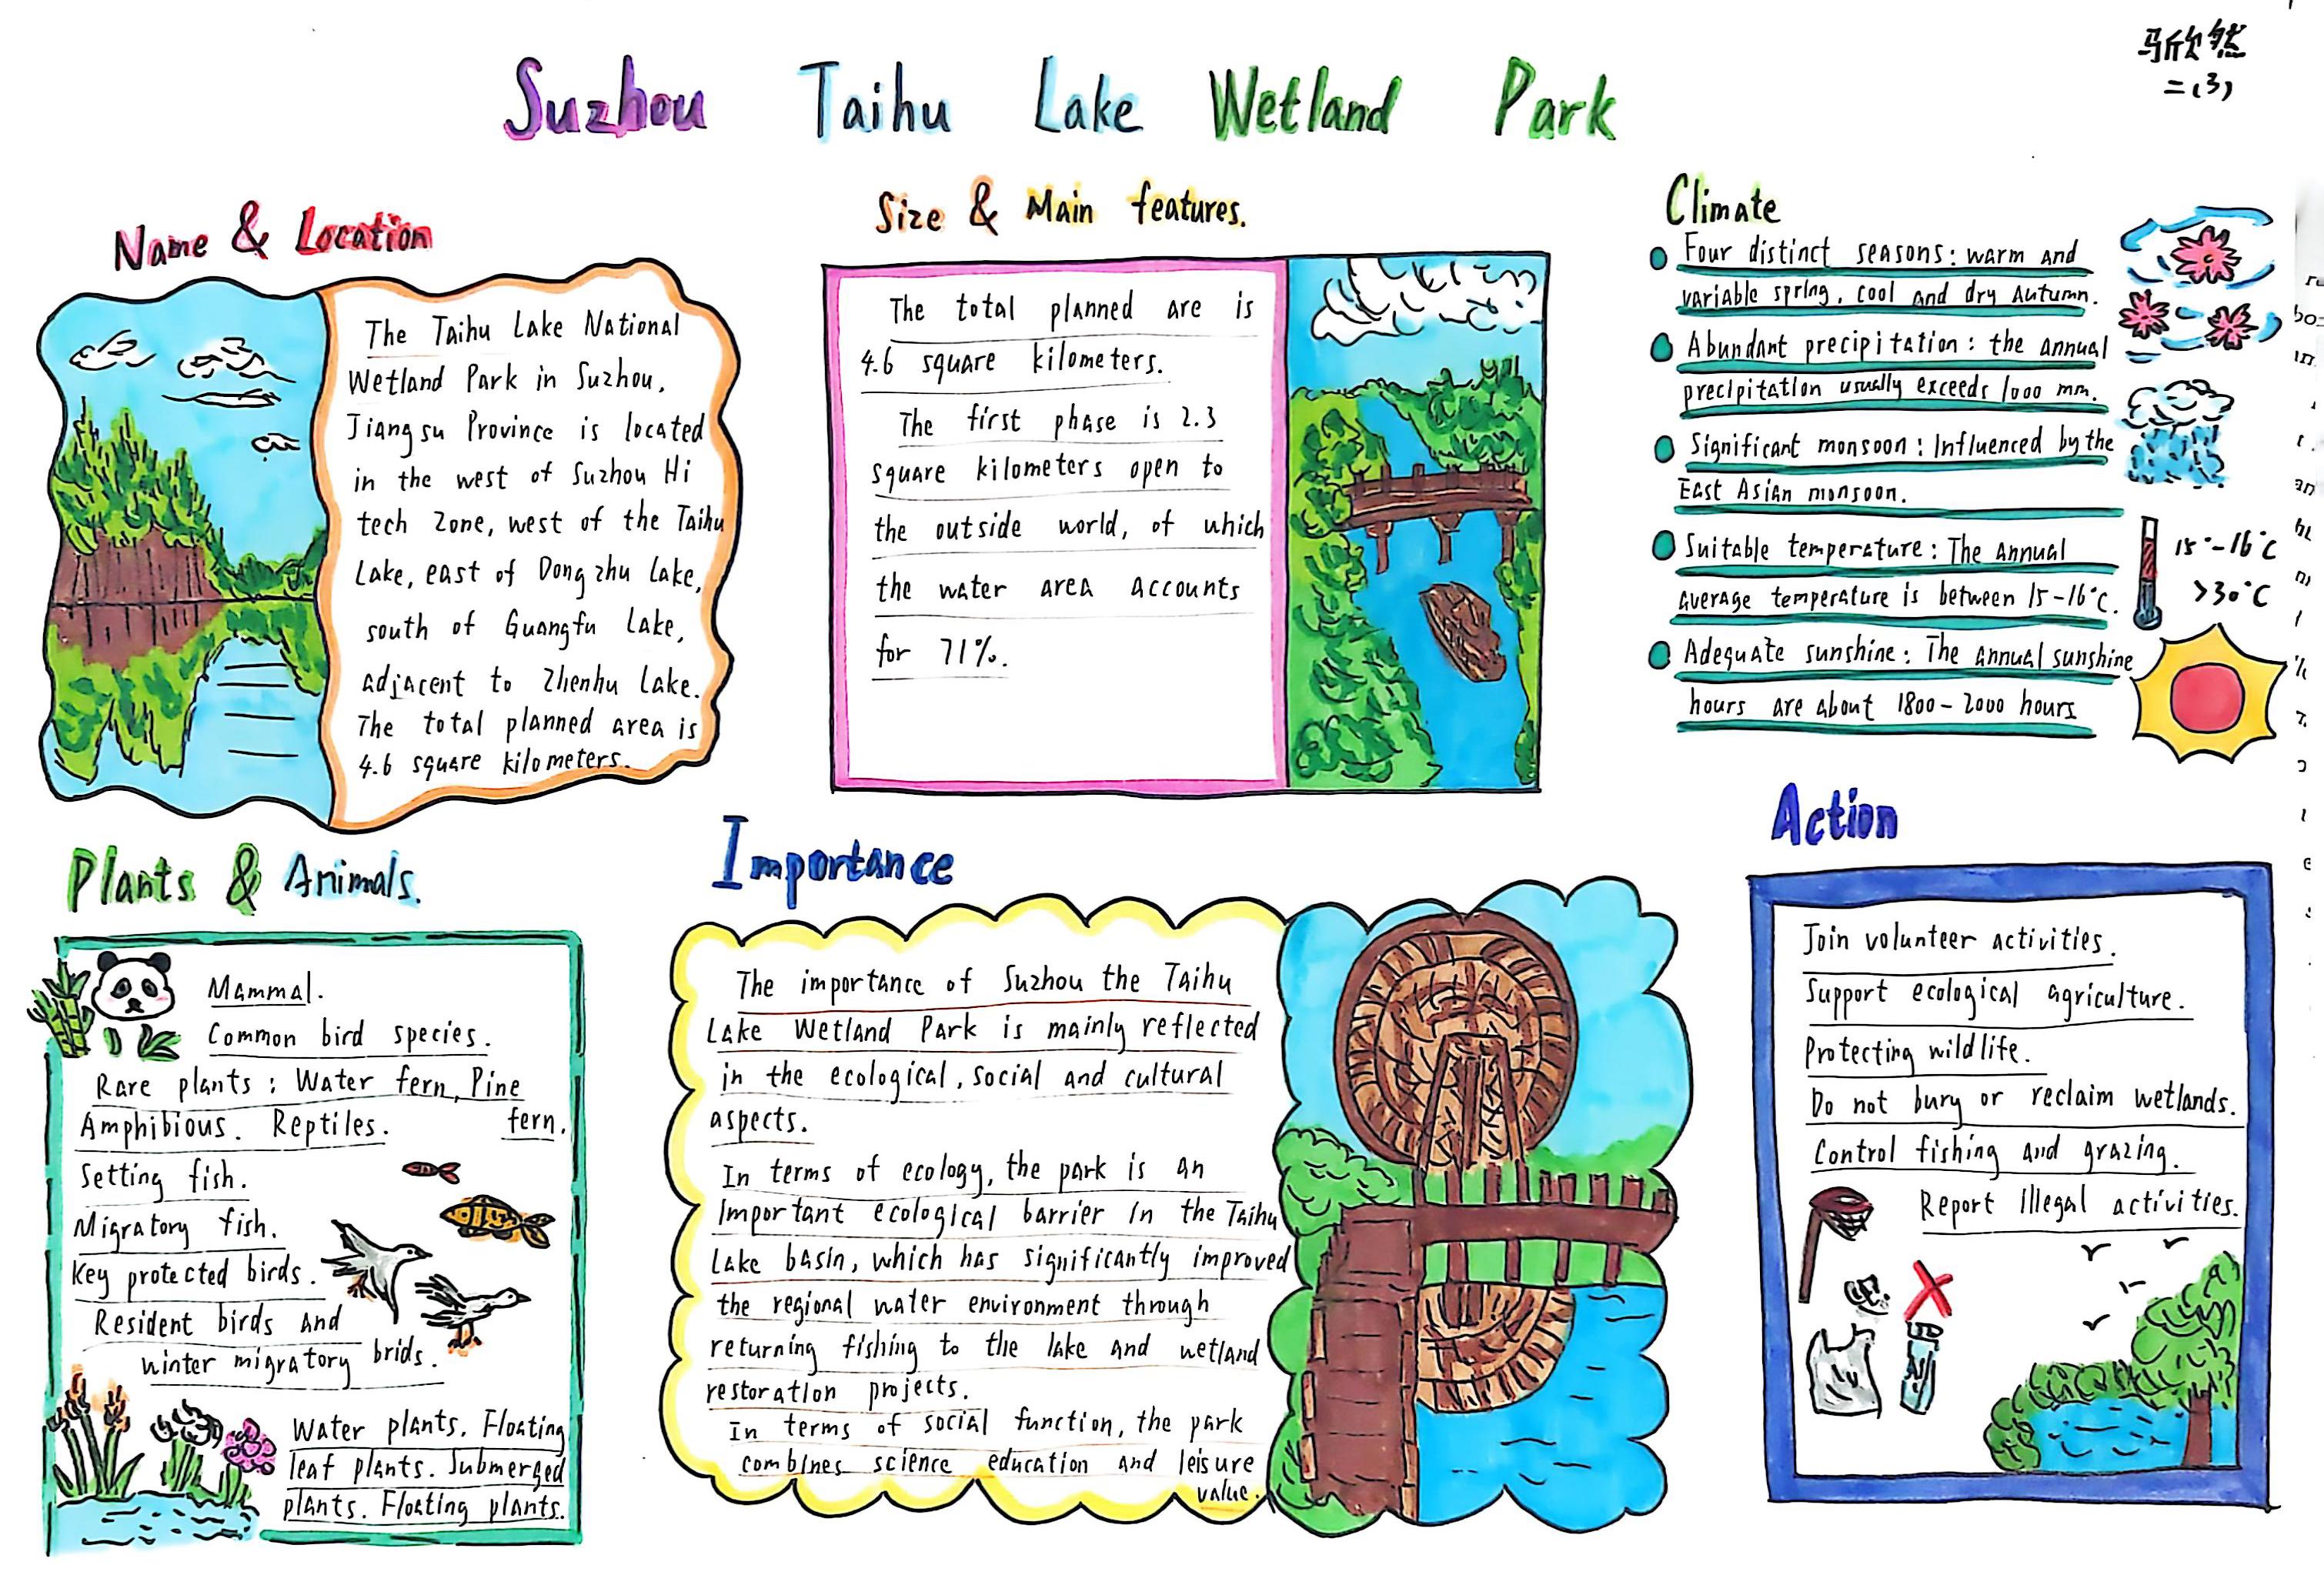 Suzhou Taihu Lake Wetland Park
二(3)
Name & Location
The Taihu Lake National
Wetland Park in Suzhou,
Jiangsu Province is located
in the west of Suzhou Hi
tech Zone, west of the Taihu
Lake, east of Dongzhu Lake,
south of Guangfu Lake,
adjacent to Zhenhu Lake.
The total planned area is
4.6 square kilometers.
Size & Main features.
The total planned are is
4.6 square kilometers.
The first phase is 2.3
square kilometers open to
the outside world, of which
the water area accounts
for 71%.
Climate
Four distinct seasons: warm and
variable spring, cool and dry Autumn.
Abundant precipitation: the annual
precipitation usually exceeds 1000 mm.
Significant monsoon: Influenced by the
East Asian monsoon.
Suitable temperature: The annual
average temperature is between 15-16°C.
Adequate sunshine: The annual sunshine
hours are about 1800-2000 hours
15°-16°C
>30°C
Plants & Animals.
Mammal.
Common bird species.
Rare plants: Water fern, Pine
fern.
Amphibious. Reptiles.
Setting fish.
Migratory fish.
Key protected birds.
Resident birds and
winter migratory brids.
Water plants. Floating
leaf plants. Submerged
plants. Floating plants.
Importance
The importance of Suzhou the Taihu
Lake Wetland Park is mainly reflected
in the ecological, social and cultural
aspects.
In terms of ecology, the park is an
important ecological barrier in the Taihu
Lake basin, which has significantly improved
the regional water environment through
returning fishing to the lake and wetland
restoration projects.
In terms of social function, the park
combines science education and leisure
value.
Action
Join volunteer activities.
Support ecological agriculture.
Protecting wildlife.
Do not bury or reclaim wetlands.
Control fishing and grazing.
Report illegal activities.